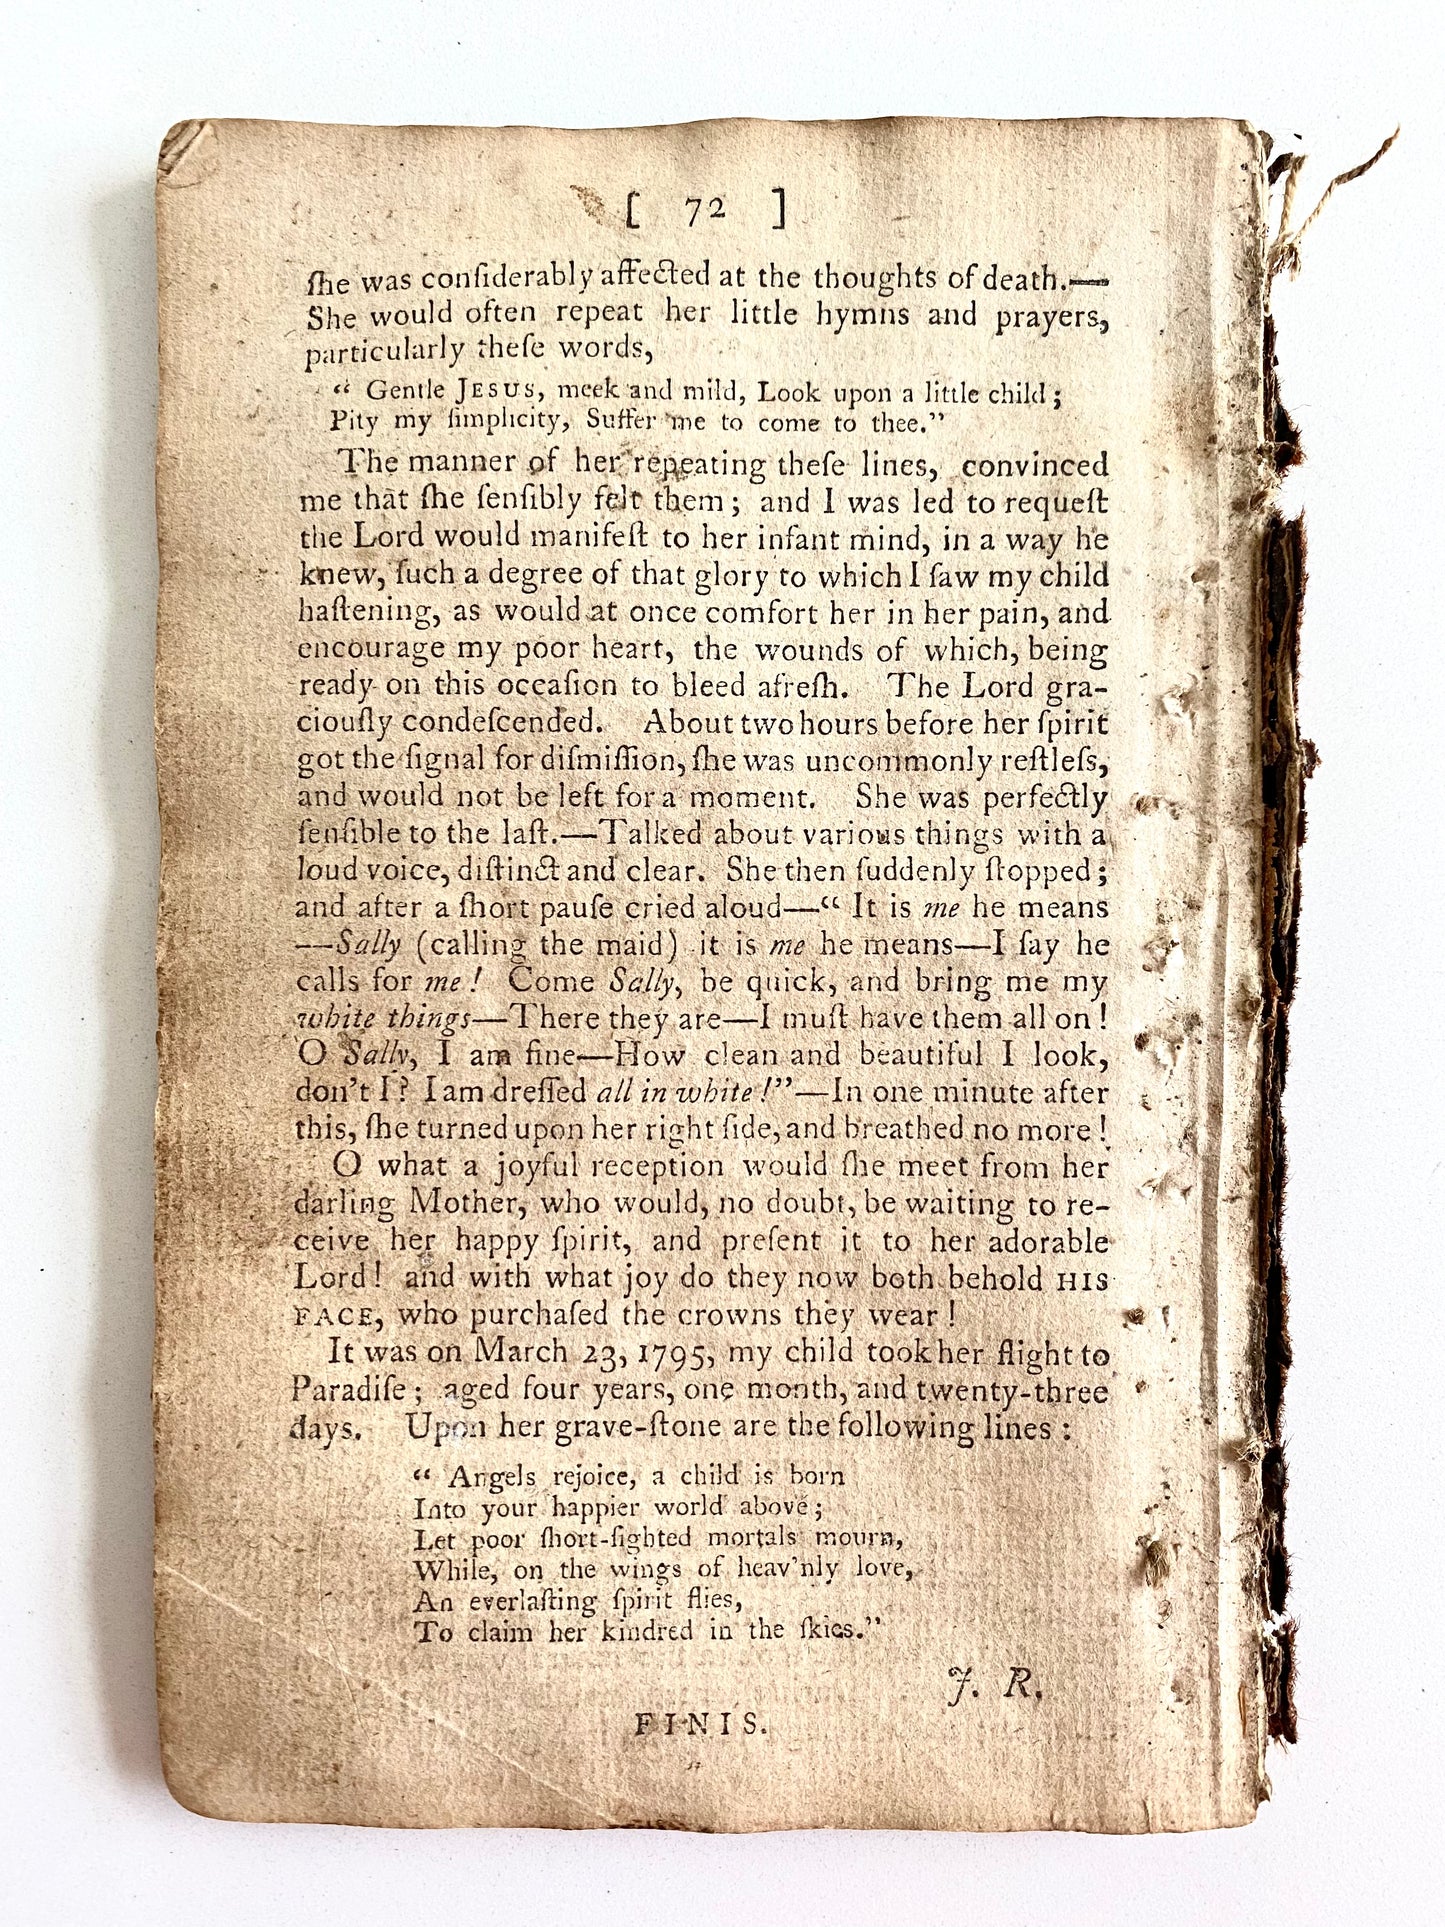 [ 72 ]
ſhe was conſiderably affected at the thoughts of death.—
She would often repeat her little hymns and prayers,
particularly theſe words,
“ Gentle JESUS, meek and mild, Look upon a little child ;
Pity my ſimplicity, Suffer me to come to thee.”
The manner of her repeating theſe lines, convinced
me that ſhe ſenſibly felt them ; and I was led to requeſt
the Lord would manifeſt to her infant mind, in a way he
knew, ſuch a degree of that glory to which I ſaw my child
haſtening, as would at once comfort her in her pain, and
encourage my poor heart, the wounds of which, being
ready on this occaſion to bleed afreſh. The Lord gra-
ciouſly condeſcended. About two hours before her ſpirit
got the ſignal for diſmiſſion, ſhe was uncommonly reſtleſs,
and would not be left for a moment. She was perfectly
ſenſible to the laſt.—Talked about various things with a
loud voice, diſtinct and clear. She then ſuddenly ſtopped ;
and after a ſhort pauſe cried aloud—“ It is me he means
—Sally (calling the maid) it is me he means—I ſay he
calls for me ! Come Sally, be quick, and bring me my
white things—There they are—I muſt have them all on !
O Sally, I am fine—How clean and beautiful I look,
don’t I ? I am dreſſed all in white !”—In one minute after
this, ſhe turned upon her right ſide, and breathed no more !
O what a joyful reception would ſhe meet from her
darling Mother, who would, no doubt, be waiting to re-
ceive her happy ſpirit, and preſent it to her adorable
Lord ! and with what joy do they now both behold HIS
FACE, who purchaſed the crowns they wear !
It was on March 23, 1795, my child took her flight to
Paradiſe ; aged four years, one month, and twenty-three
days. Upon her grave-ſtone are the following lines :
“ Angels rejoice, a child is born
Into your happier world above ;
Let poor ſhort-ſighted mortals mourn,
While, on the wings of heav’nly love,
An everlaſting ſpirit flies,
To claim her kindred in the ſkies.”
J. R.
FINIS.